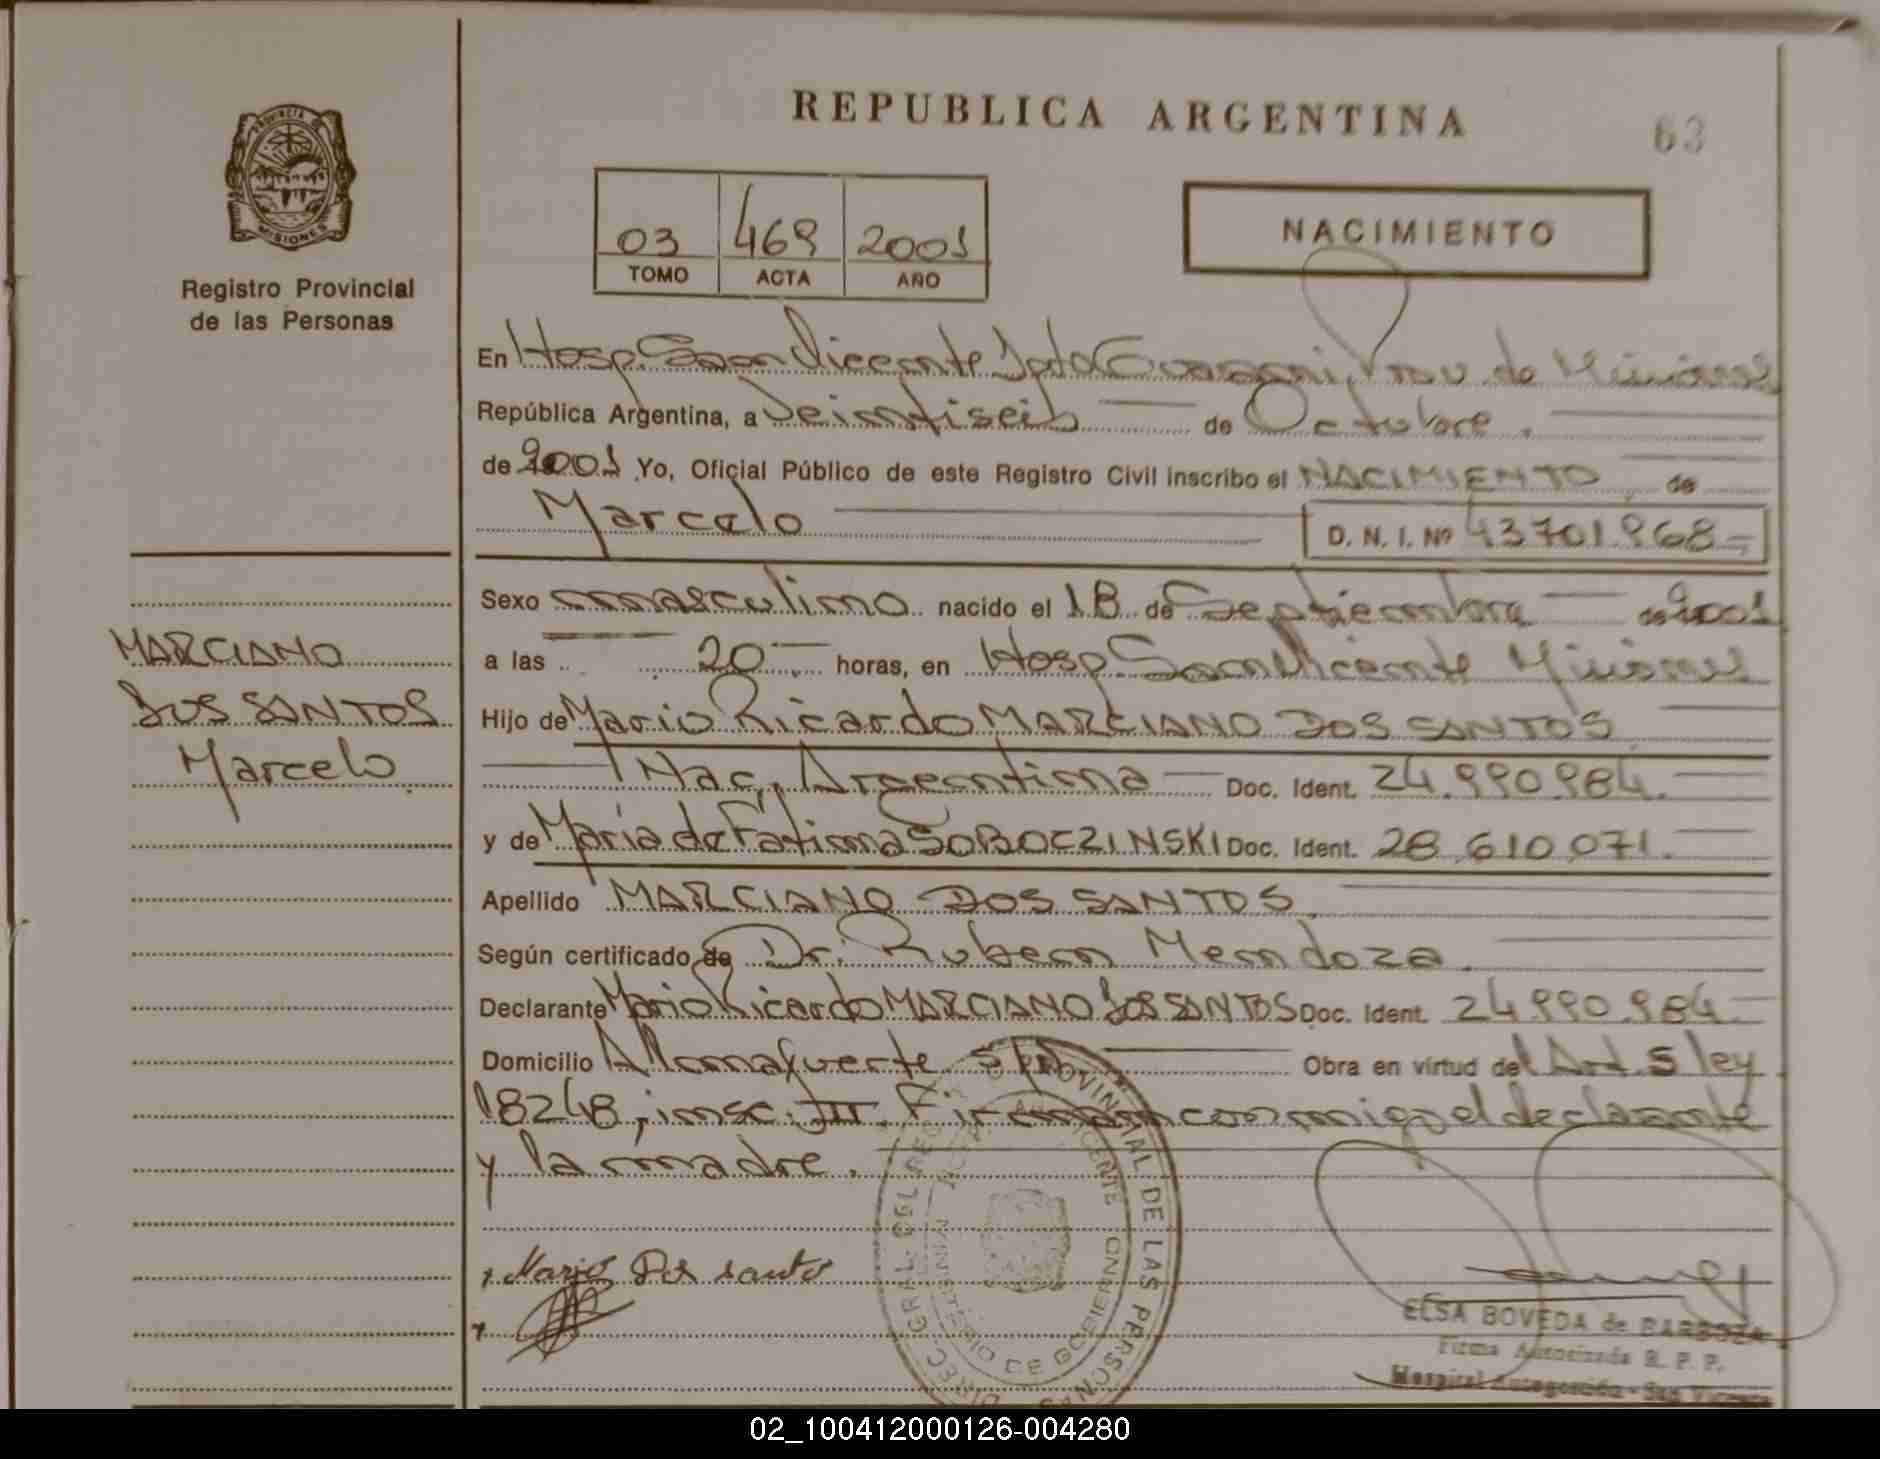 REPUBLICA ARGENTINA
63
PROVINCIA DE
MISIONES
Registro Provincial
de las Personas
03 469 2001
TOMO ACTA AÑO
NACIMIENTO
En Hosp. San Vicente Dpto Guarani, Prov. de Misiones
República Argentina, a Veintiseis de Octubre.
de 2001 Yo, Oficial Público de este Registro Civil inscribo el NACIMIENTO de
Marcelo
D. N. I. Nº 43701968-
Sexo masculino nacido el 18 de Septiembre de 2001
a las 20 horas, en Hosp. San Vicente Misiones
Hijo de Mario Ricardo MARCIANO DOS SANTOS
Nac. Argentina Doc. Ident. 24.990.984.
y de Maria de Fatima SOBOCZINSKI Doc. Ident. 28.610.071.
Apellido MARCIANO DOS SANTOS.
Según certificado de Dr. Ruben Mendoza.
Declarante Mario Ricardo MARCIANO DOS SANTOS Doc. Ident. 24.990.984.
Domicilio Almafuerte s/n Obra en virtud del Art. 5 ley
18248, insc. III. Firman conmigo el declarante
y la madre.
MARCIANO
DOS SANTOS
Marcelo
Mario Dos santos
DIREC. GRAL. DEL REG. PROVINCIAL DE LAS PERSONAS
MINISTERIO DE GOBIERNO
ELSA BOVEDA de BARBOZA
Firma Autorizada R. P. P.
Hospital Autogestión - San Vicente
02_100412000126-004280